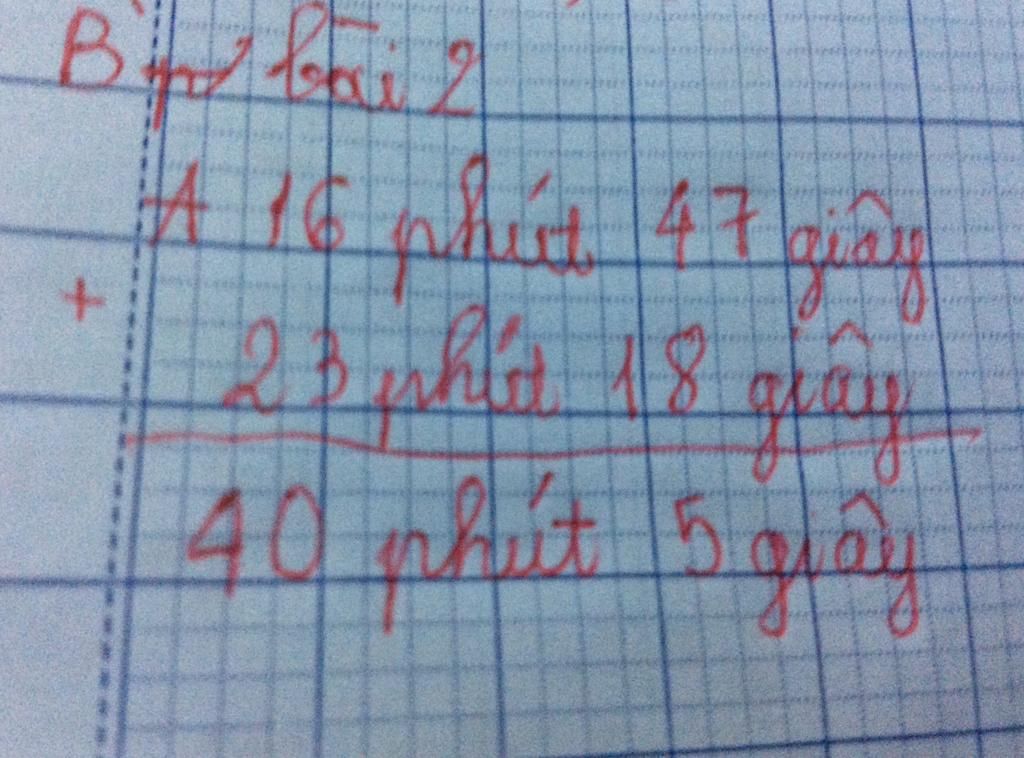 B bài 2
A 16 phút 47 giây
+
23 phút 18 giây
40 phút 5 giây